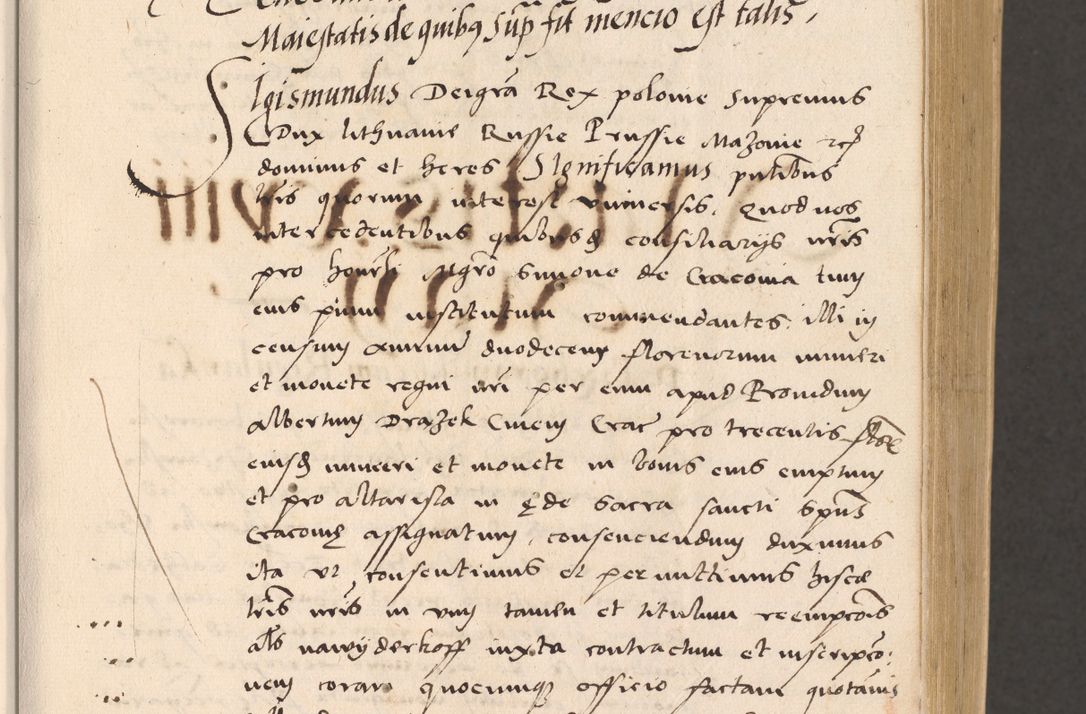 Maiestatis de quibus sup fit mencio est talis,
Sigismundus Dei gra Rex polonie Supremus
Dux lithuanie Russie Prussie Mazovie etc
dominus et heres Significamus pntibus
lris quorum interest vniuersis. Quod nos
intercedentibus quibusd consiliarijs nris
pro honrli Mgro Simone de Cracovia tum
eius pium institutum commendantes. illi in
censum annuum duodecem florenorum numeri
et monete regni nri per eum apud Providum
Albertum Drazek Civem Crac pro trecentis flor
eiusd numeri et monete in bonis eius emptum
et pro altarista in ęde sacra sancti spus
Cracovię assignatum, consenciendum duximus
ita vt consentimus et permittimus hisce
lris nris in vim tamen et titulum reempcois
als nawyderkoff iuxta contractum et inscripco:
nem coram quocumque officio factam quotanis